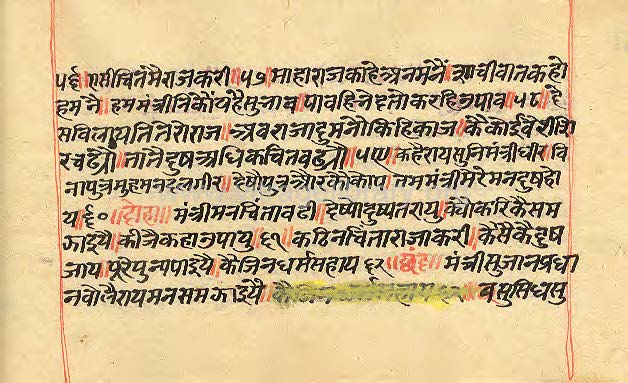 ५६॥ एसी चितमै राज करी॥५७॥ माहाराज काहे अनमनैं॥ साची वात कहो
हम नै॥ हम मंत्रीनिकौं यह सुनाव॥ पाव हि
स विलायति तेरो राज॥ अव राजा दुमनौ किहि काज॥ कै कोई वैरी सि
र चढ्यौ॥ तातै दुष अधिक चित वढ्यौ॥५९॥ कहै राय सुनि मंत्री धीर॥ वि
ना पुत्र मुह मन दलगीर॥ देषौ पुत्र और को कोय॥ तम मंत्री मेरे मन दुष हो
य॥६०॥ दोहा॥ मंत्री मन चिंता वढी॥ देष्यो दुष्यत राय॥ क्यौ करि कै सम
झाइयै॥ कीजै कहा उपाय॥६१॥ कठिन चिंता राजा करी॥ कैसै कै दुष
जाय॥ पूरै पुन्य पाइयै॥ कै जिनधर्म सहाय ६२॥ छंद॥ मंत्री सुजान प्रधा
न वोलै राय मन समझाइयै॥ वसु सिध सु